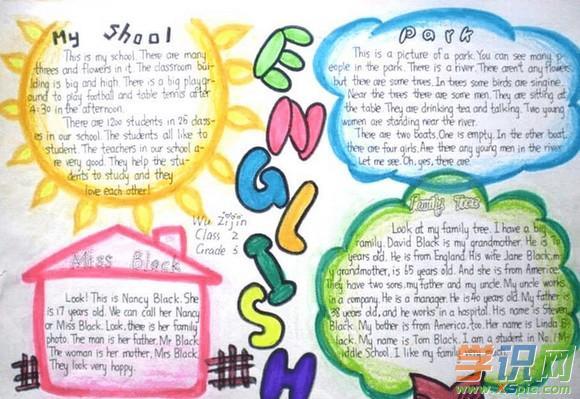 My Shool
This is my school. There are many
threes and flowers in it. The classroom bui-
lding is big and high. There is a big playgr-
ound to play football and table tennis after
4:30 in the afternoon.
There are 1200 students in 26 class-
es in our school. The students all like to
student. The teachers in our school a-
re very good. They help the stu-
dents to study and they
love each other!
ENGLISH
Park
This is a picture of a park. You can see many p-
eople in the park. There is a river. There aren't any flowers,
but there are some trees. In trees some birds are singing.
Near the trees there are some men. They are sitting at
the table. They are drinking tea and talking. Two young
women are standing near the river.
There are two boats. One is empty. In the other boat,
there are four girls. Are there any young men in the river
Let me see. Oh, yes, there are.
Wu Zijin
Class 2
Grade 5
Miss Black
Look! This is Nancy Black. She
is 17 years old. We can call her Nancy
or Miss Black. Look, there is her family
photo. The man is her father, Mr Black
The woman is her mother, Mrs Black.
They look very happy.
Family Tree
Look at my family tree. I have a big
family. David Black is my grandmother. He is
years old. He is from England. His wife Jane Black, m-
y grandmother, is 65 years old. And she is from America.
They have two sons, my father and my uncle. My uncle works
in a company. He is a manager. He is 40 years old. My father is
38 years old, and he works in a hospital. His name is Steven
Black. My bother is from America, too. Her name is Linda B-
lack. My name is Tom Black. I am a student in No.1 M-
iddle School. I like my family
学识网
www.xspic.com